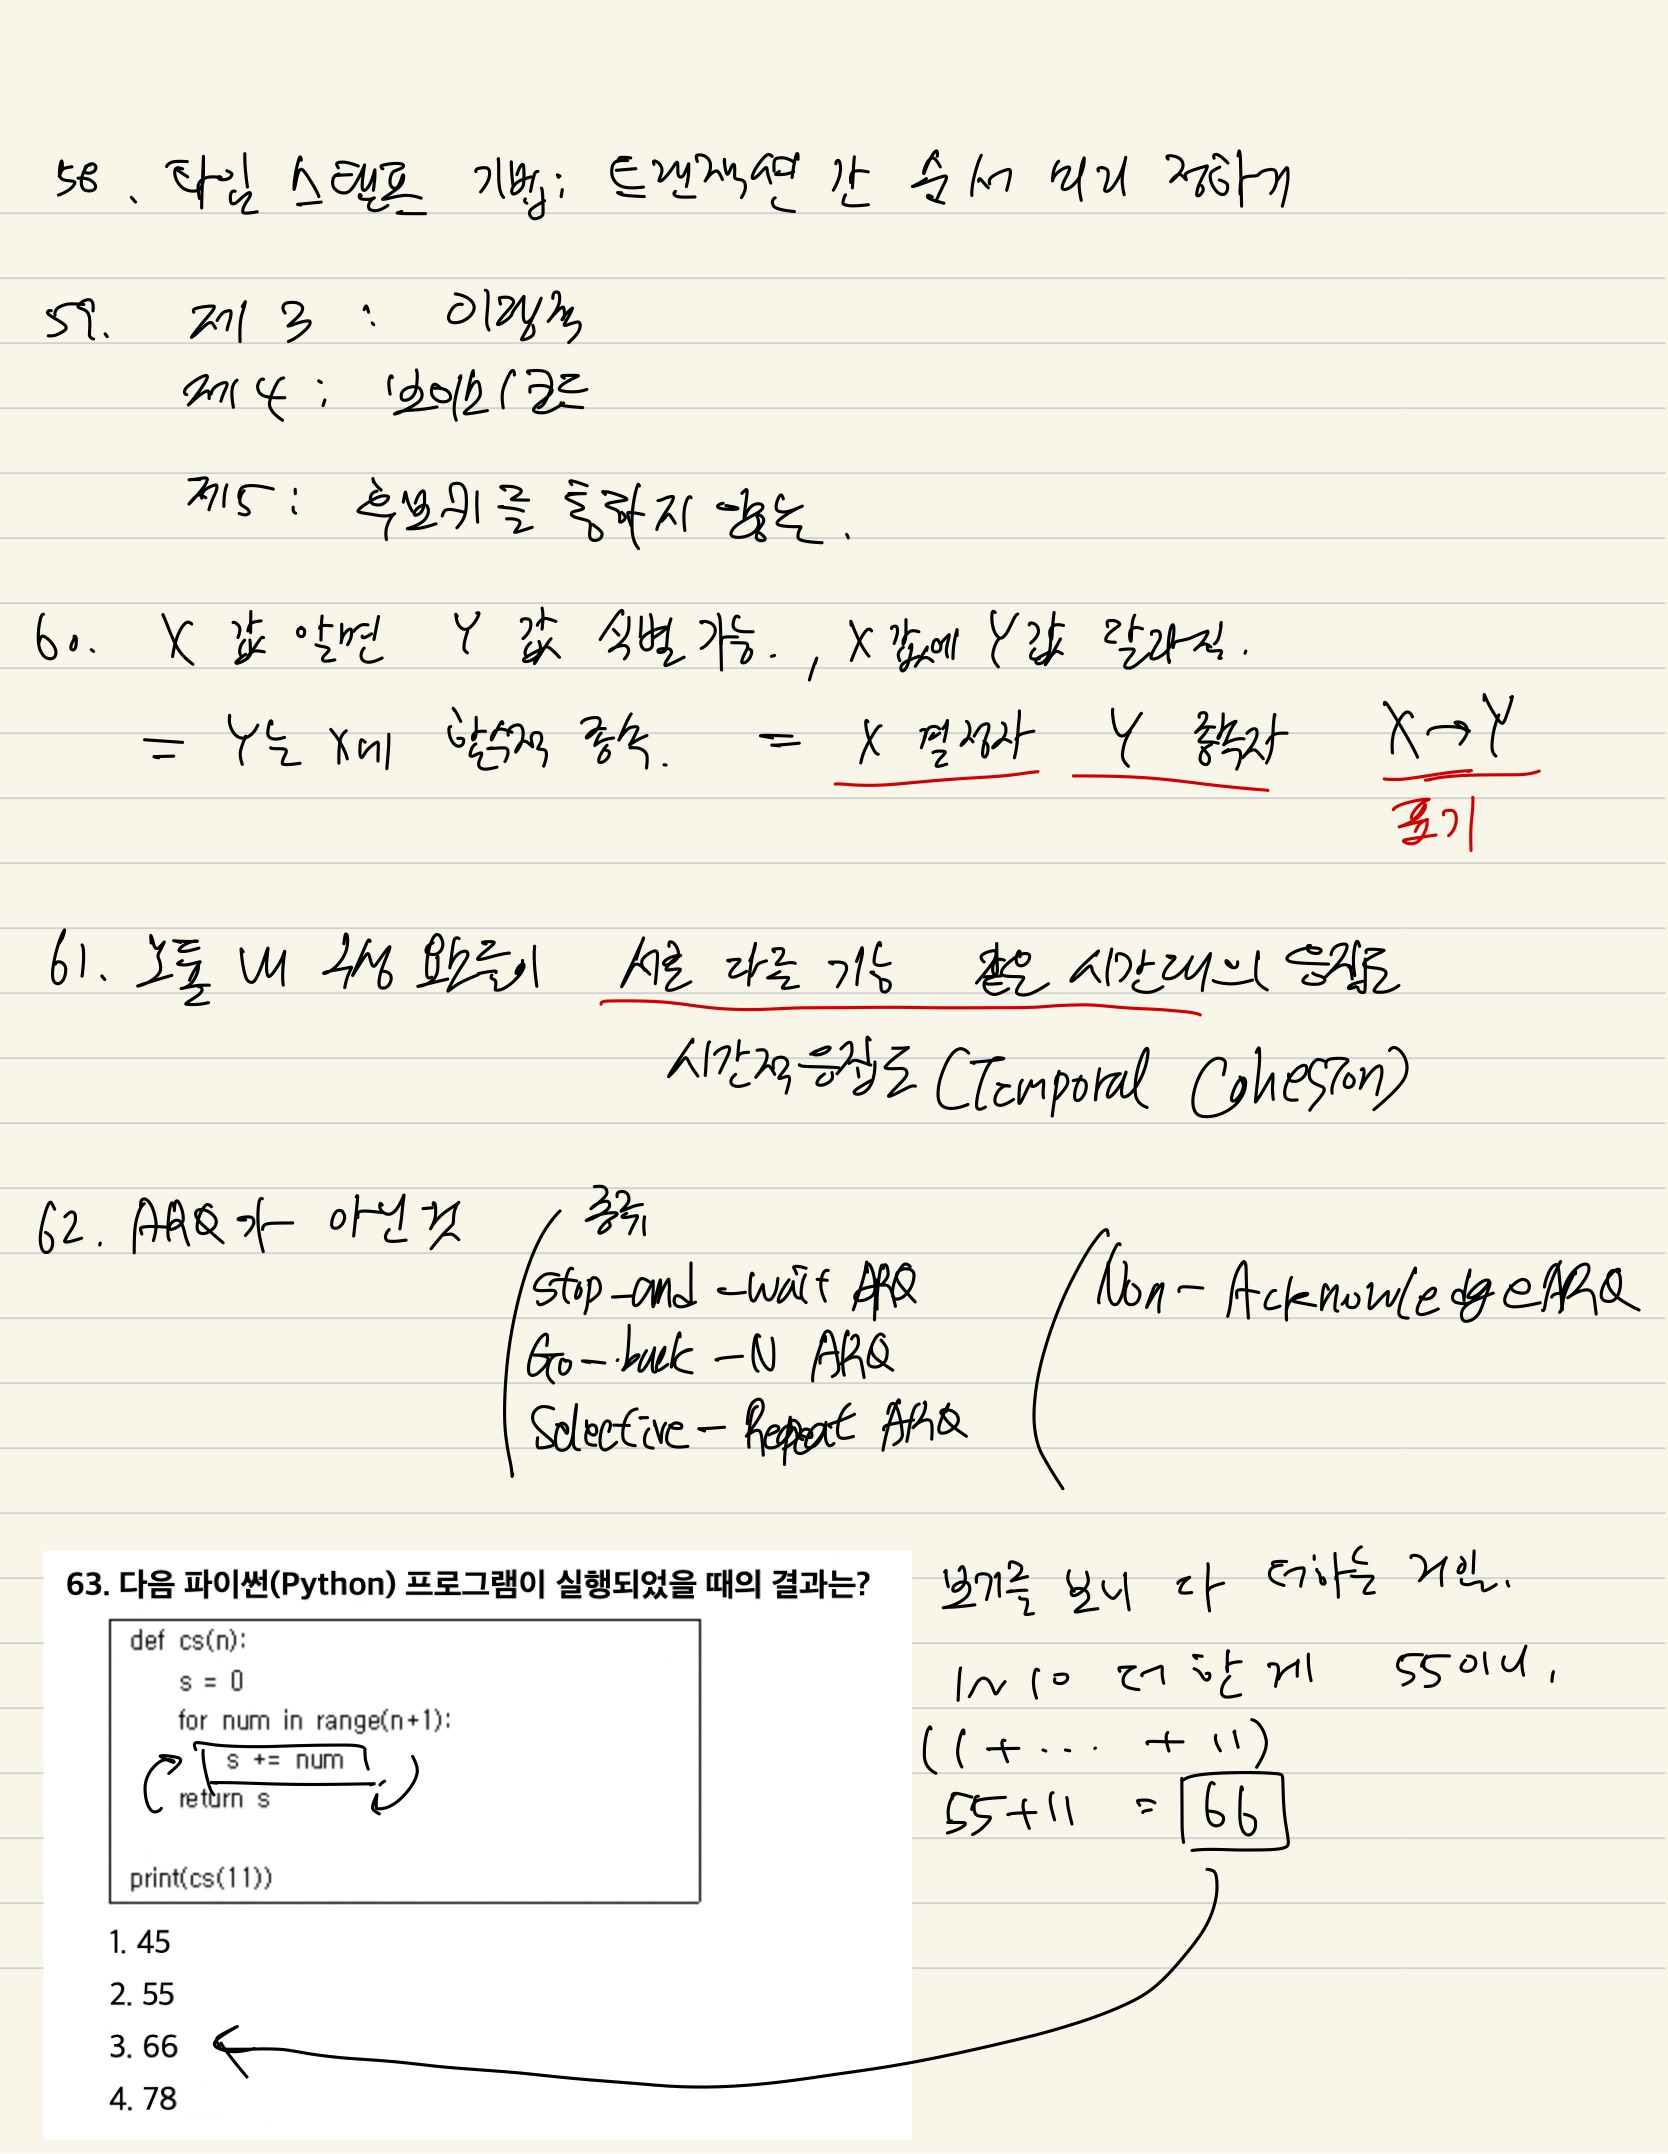 58. 타임 스탬프 기법; 트랜잭션 간 순서 미리 정하기
59. 제 3 : 이행적
제 4 : 보이스/코드
제 5 : 후보키를 통하지 않는.
60. X 값 알면 Y 값 식별 가능., X 값에 Y값 달라짐.
= Y는 X에 함수적 종속. = X 결정자 Y 종속자 X → Y
표기
61. 모듈 내 구성 요소들이 서로 다른 기능 같은 시간대의 응집도
시간적 응집도 (Temporal Cohesion)
62. ARQ가 아닌 것
종류
Stop-and-wait ARQ
Go-back-N ARQ
Selective-Repeat ARQ
Non-Acknowledge ARQ
63. 다음 파이썬(Python) 프로그램이 실행되었을 때의 결과는?
def cs(n):
s = 0
for num in range(n+1):
s += num
return s
print(cs(11))
1. 45
2. 55
3. 66
4. 78
보기를 보니 다 더하는 거임.
1~10 더한 게 55이니,
(1+... + 11)
55+11 = 66